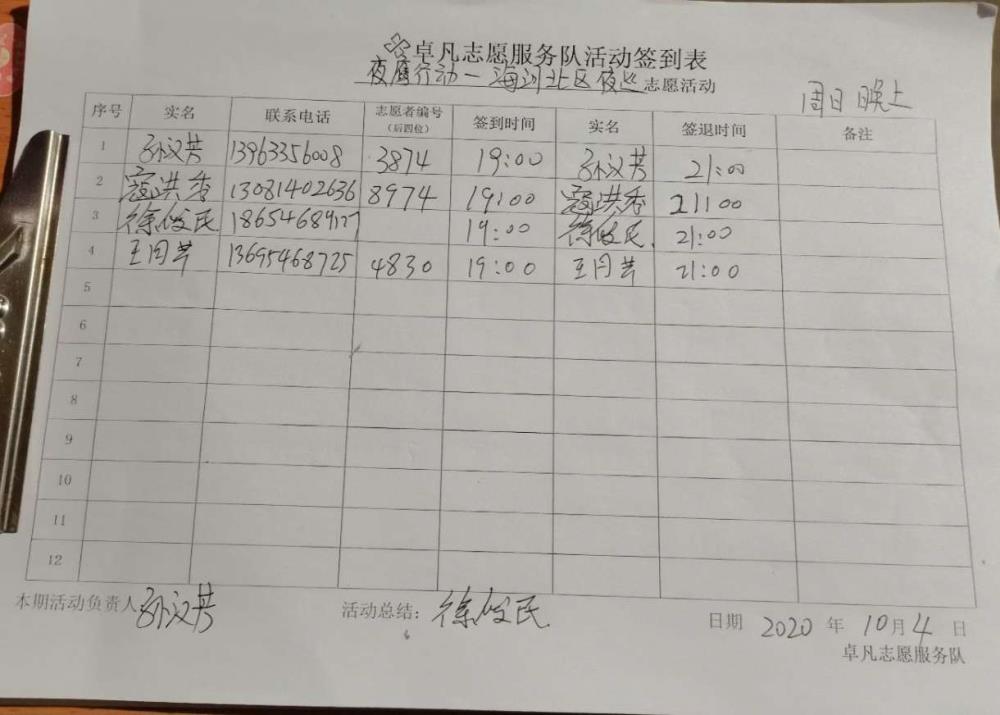 卓凡志愿服务队活动签到表
夜鹰行动一海河北区夜巡志愿活动
周日晚上
序号 实名 联系电话 志愿者编号(后四位) 签到时间 实名 签退时间 备注
1 孙汉芳 13963356008 3874 19:00 孙汉芳 21:00
2 寇洪香 13081402636 8974 19:00 寇洪香 21:00
3 徐俊民 186546891 19:00 徐俊民 21:00
4 王同芳 13695468725 4830 19:00 王同芳 21:00
5
6
7
8
9
10
11
12
本期活动负责人 孙汉芳 活动总结: 徐俊民 日期 2020 年 10 月 4 日
卓凡志愿服务队